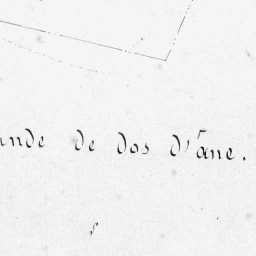 ande de Dos D'âne.